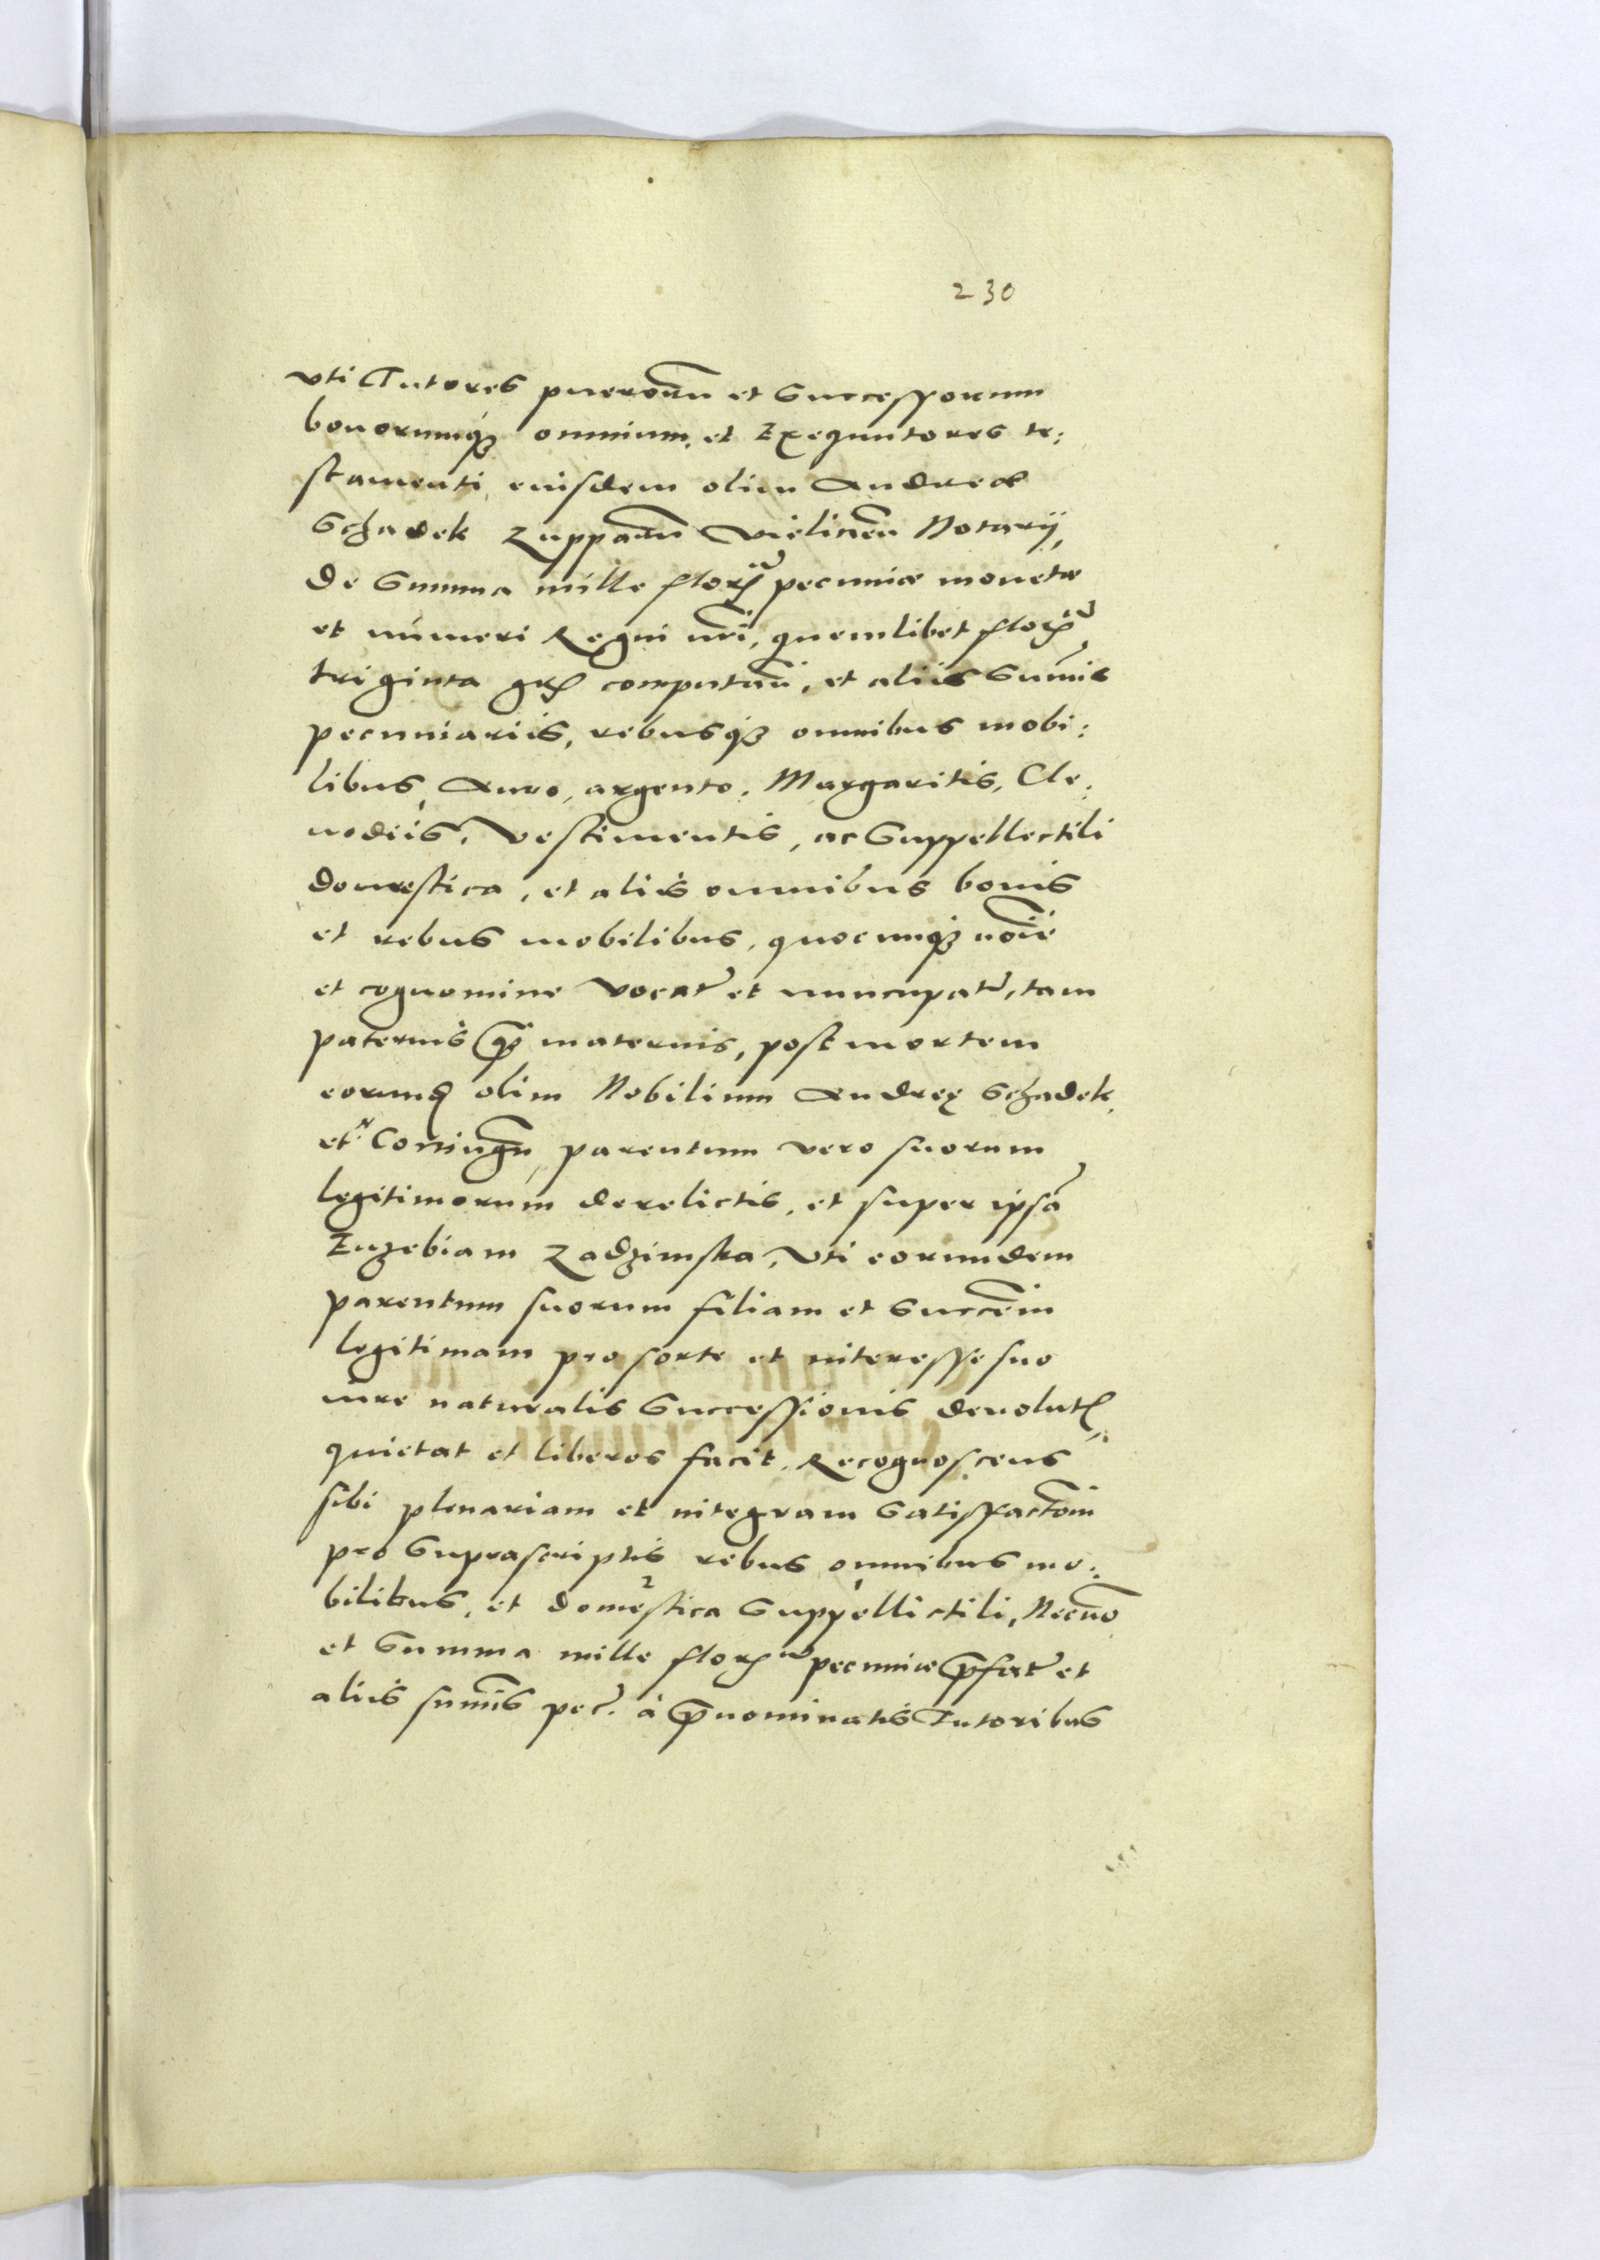 230
vti Tutores puerorũ et Successorum
bonorumq3 omnium, et Exequutores te:
stamenti eiusdem olim Andreæ
Schadek Zuppaȓũ Vielicieñ Notarij,
De Summa mille floꝝ pecuniæ monetæ
et numeri Regni nr̃i, quemlibet floꝝ
triginta gr̃ computan̄, et aliis Sum̃is
pecuniariis, rebusq3 omnibus mobi:
libus, Auro, argento, Margaritis, Cle:
nodiis, Vestimentis, ac Suppellectili
domestica, et aliis omnibus bonis
et rebus mobilibus, quocunq3 noĩe
et cognomine vocat̃ et nuncupat̃, tam
paternis q̃ maternis, post mortem
eorund̃ olim Nobilium Andreę Schadek
et Coniugũ parentum vero suorum
legitimorum derelictis, et super ipsã
Euzebiam Zadzimska, Vti eorundem
parentum suorum filiam et Succ̃em
legitimam pro sorte et interesse suo
iure naturalis Successionis deuolut̃
quietat et liberos facit, Recognoscens
sibi plenariam et integram Satisfact̃om
pro Suprascriptis rebus omnibus mo:
bilibus, et domestica Suppellictili, Necnõ
et Summa mille floꝝ pecuniæ p̃fat̃ et
aliis sum̃is pec̃. à p̃nominatis Tutoribus